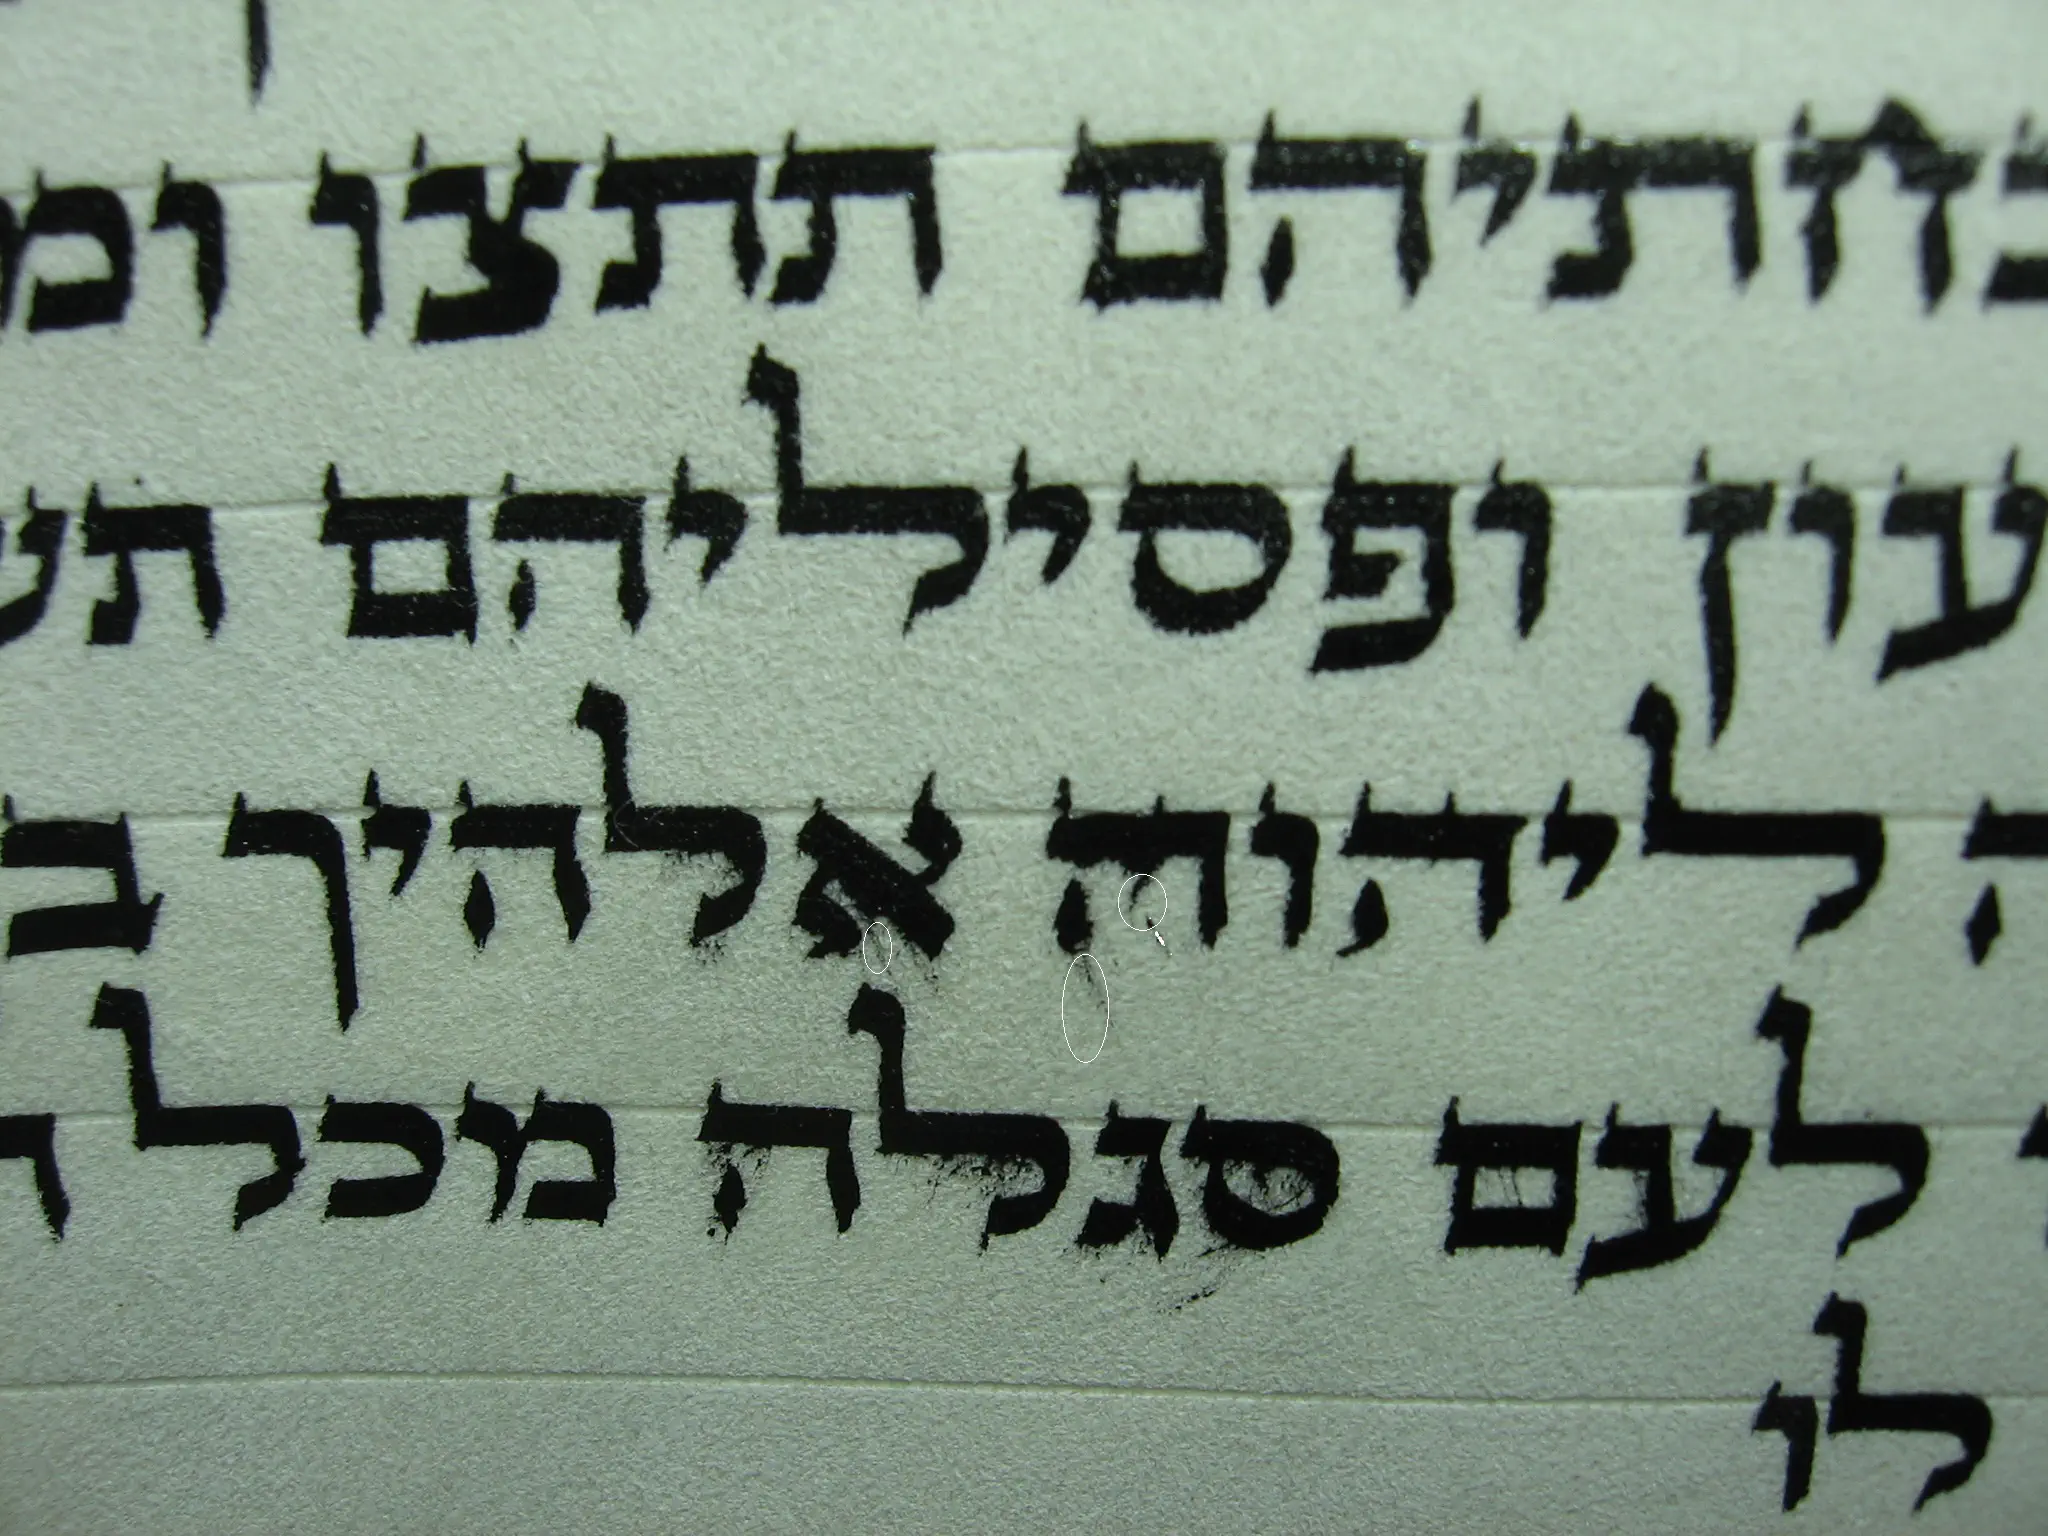 בחתיהם תתצו ומ
עון ופסיליהם תש
ה ליהוה אלהיך ב
לעם סגלה מכל ה
לו